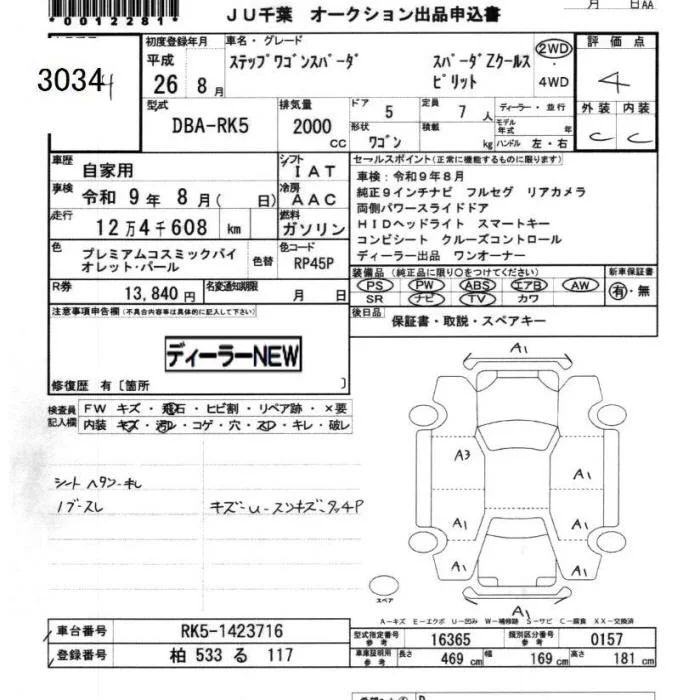 *0012281*
JU千葉 オークション出品申込書
月 日AA
3034
初度登録年月
平成
26 8月
車名・グレード
ステップワゴンスパーダ スパーダZクールス
ピリット
2WD
4WD
評価点
4
外装 内装
C C
型式
DBA-RK5
排気量
2000
CC
ドア 5
定員 7人
形状 ワゴン
積載 kg
ディーラー・並行
モデル年式 年
ハンドル 左・右
車歴 自家用
シフト IAT
車検 令和 9年 8月( 日)
冷房 AAC
走行 12万4千608 km
燃料 ガソリン
色 プレミアムコスミックバイ
オレット・パール
色替
色コード
RP45P
R券 13,840円
名変通知期限 月 日
セールスポイント(正常に機能するものに限ります)
車検:令和9年8月
純正9インチナビ フルセグ リアカメラ
両側パワースライドドア
HIDヘッドライト スマートキー
コンビシート クルーズコントロール
ディーラー出品 ワンオーナー
装備品(純正品に限り○をつけてください)
PS PW ABS エアB AW
SR ナビ TV カワ
新車保証書
有・無
後日品 保証書・取説・スペアキー
注意事項申告欄(不具合内容等は具体的に記入して下さい)
ディーラーNEW
修復歴 有〔箇所 〕
検査員
記入欄
FW キズ・飛石・ヒビ割・リペア跡・×要
内装 キズ・汚レ・コゲ・穴・スレ・キレ・破レ
シート
A1
A3
A1
A1
A1
A1
A1
A1
スペア
A-キズ E-エクボ U-凹み W-補修跡 S-サビ C-腐食 XX-交換済
車台番号 RK5-1423716
登録番号 柏 533 る 117
型式指定番号
参考
16365
類別区分番号
参考
0157
車庫証明用
参考
長さ 469cm 幅 169cm 高さ 181cm